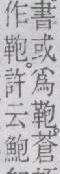 書或為鞄蒼
作鞄。許云鮑